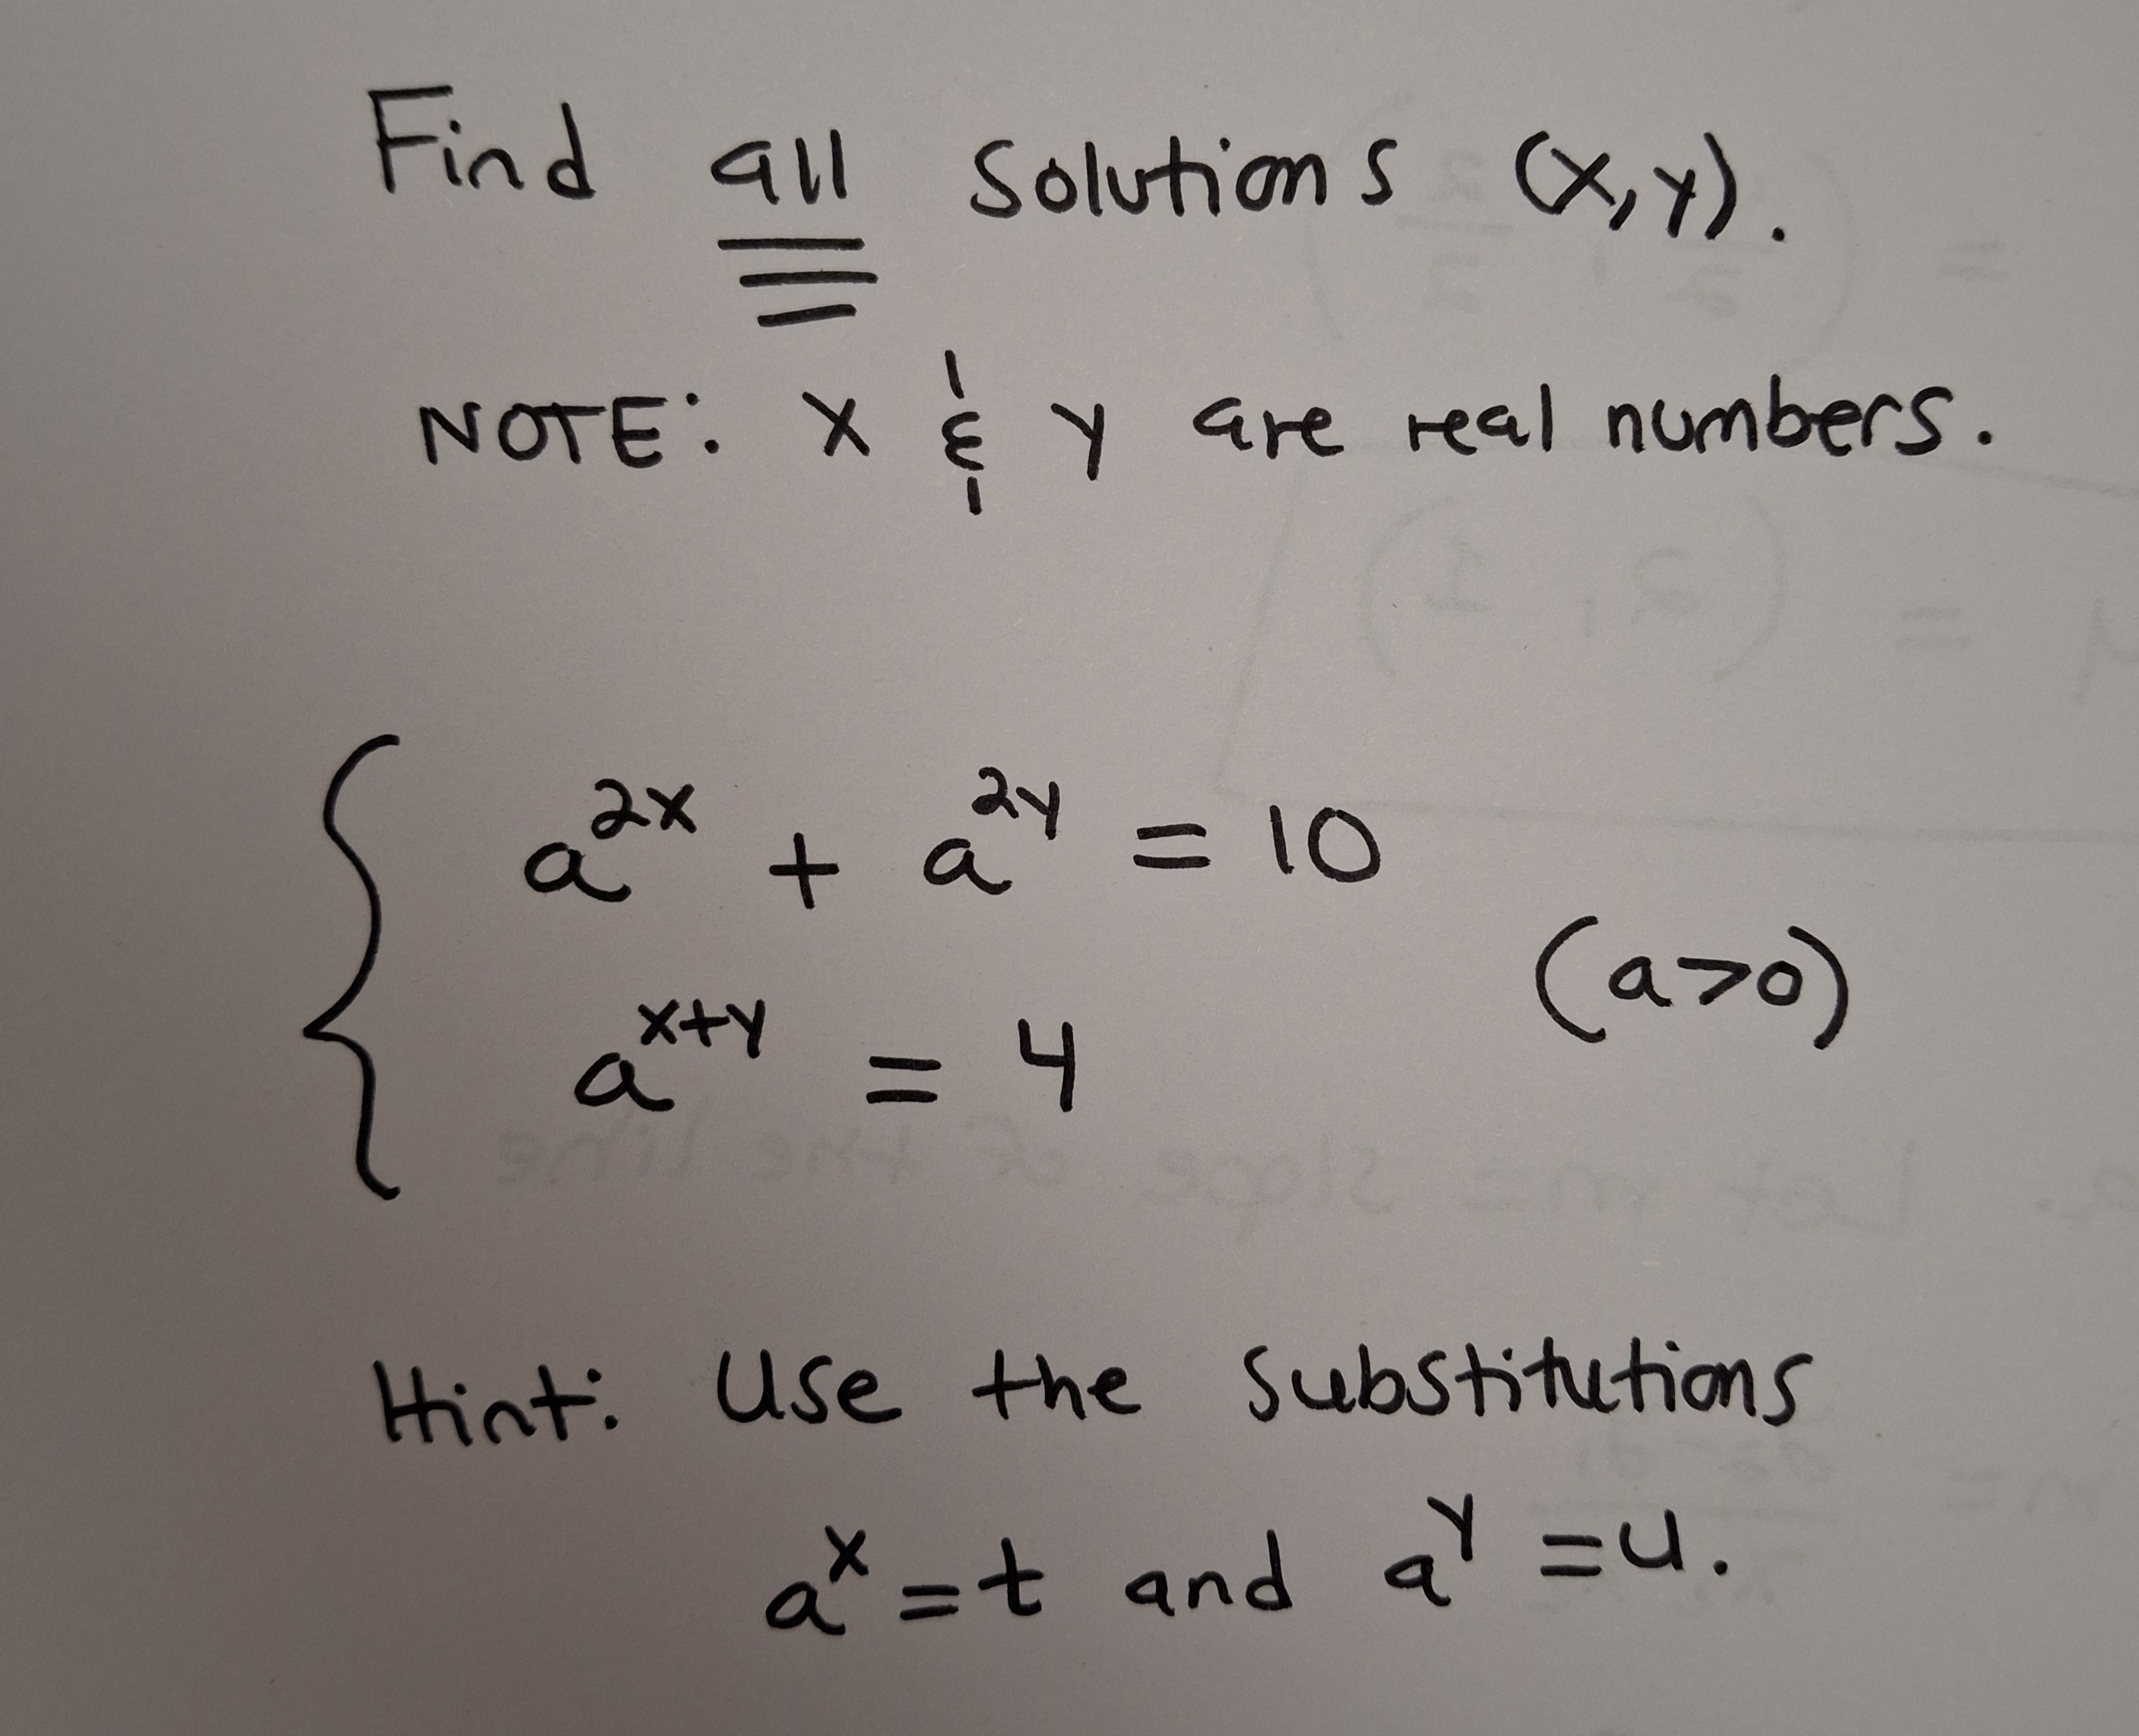 Find all solutions (x,y).
NOTE: x & y are real numbers.
a^{2x} + a^{2y} = 10
(a>0)
a^{x+y} = 4
Hint: Use the substitutions
a^x = t and a^y = u.